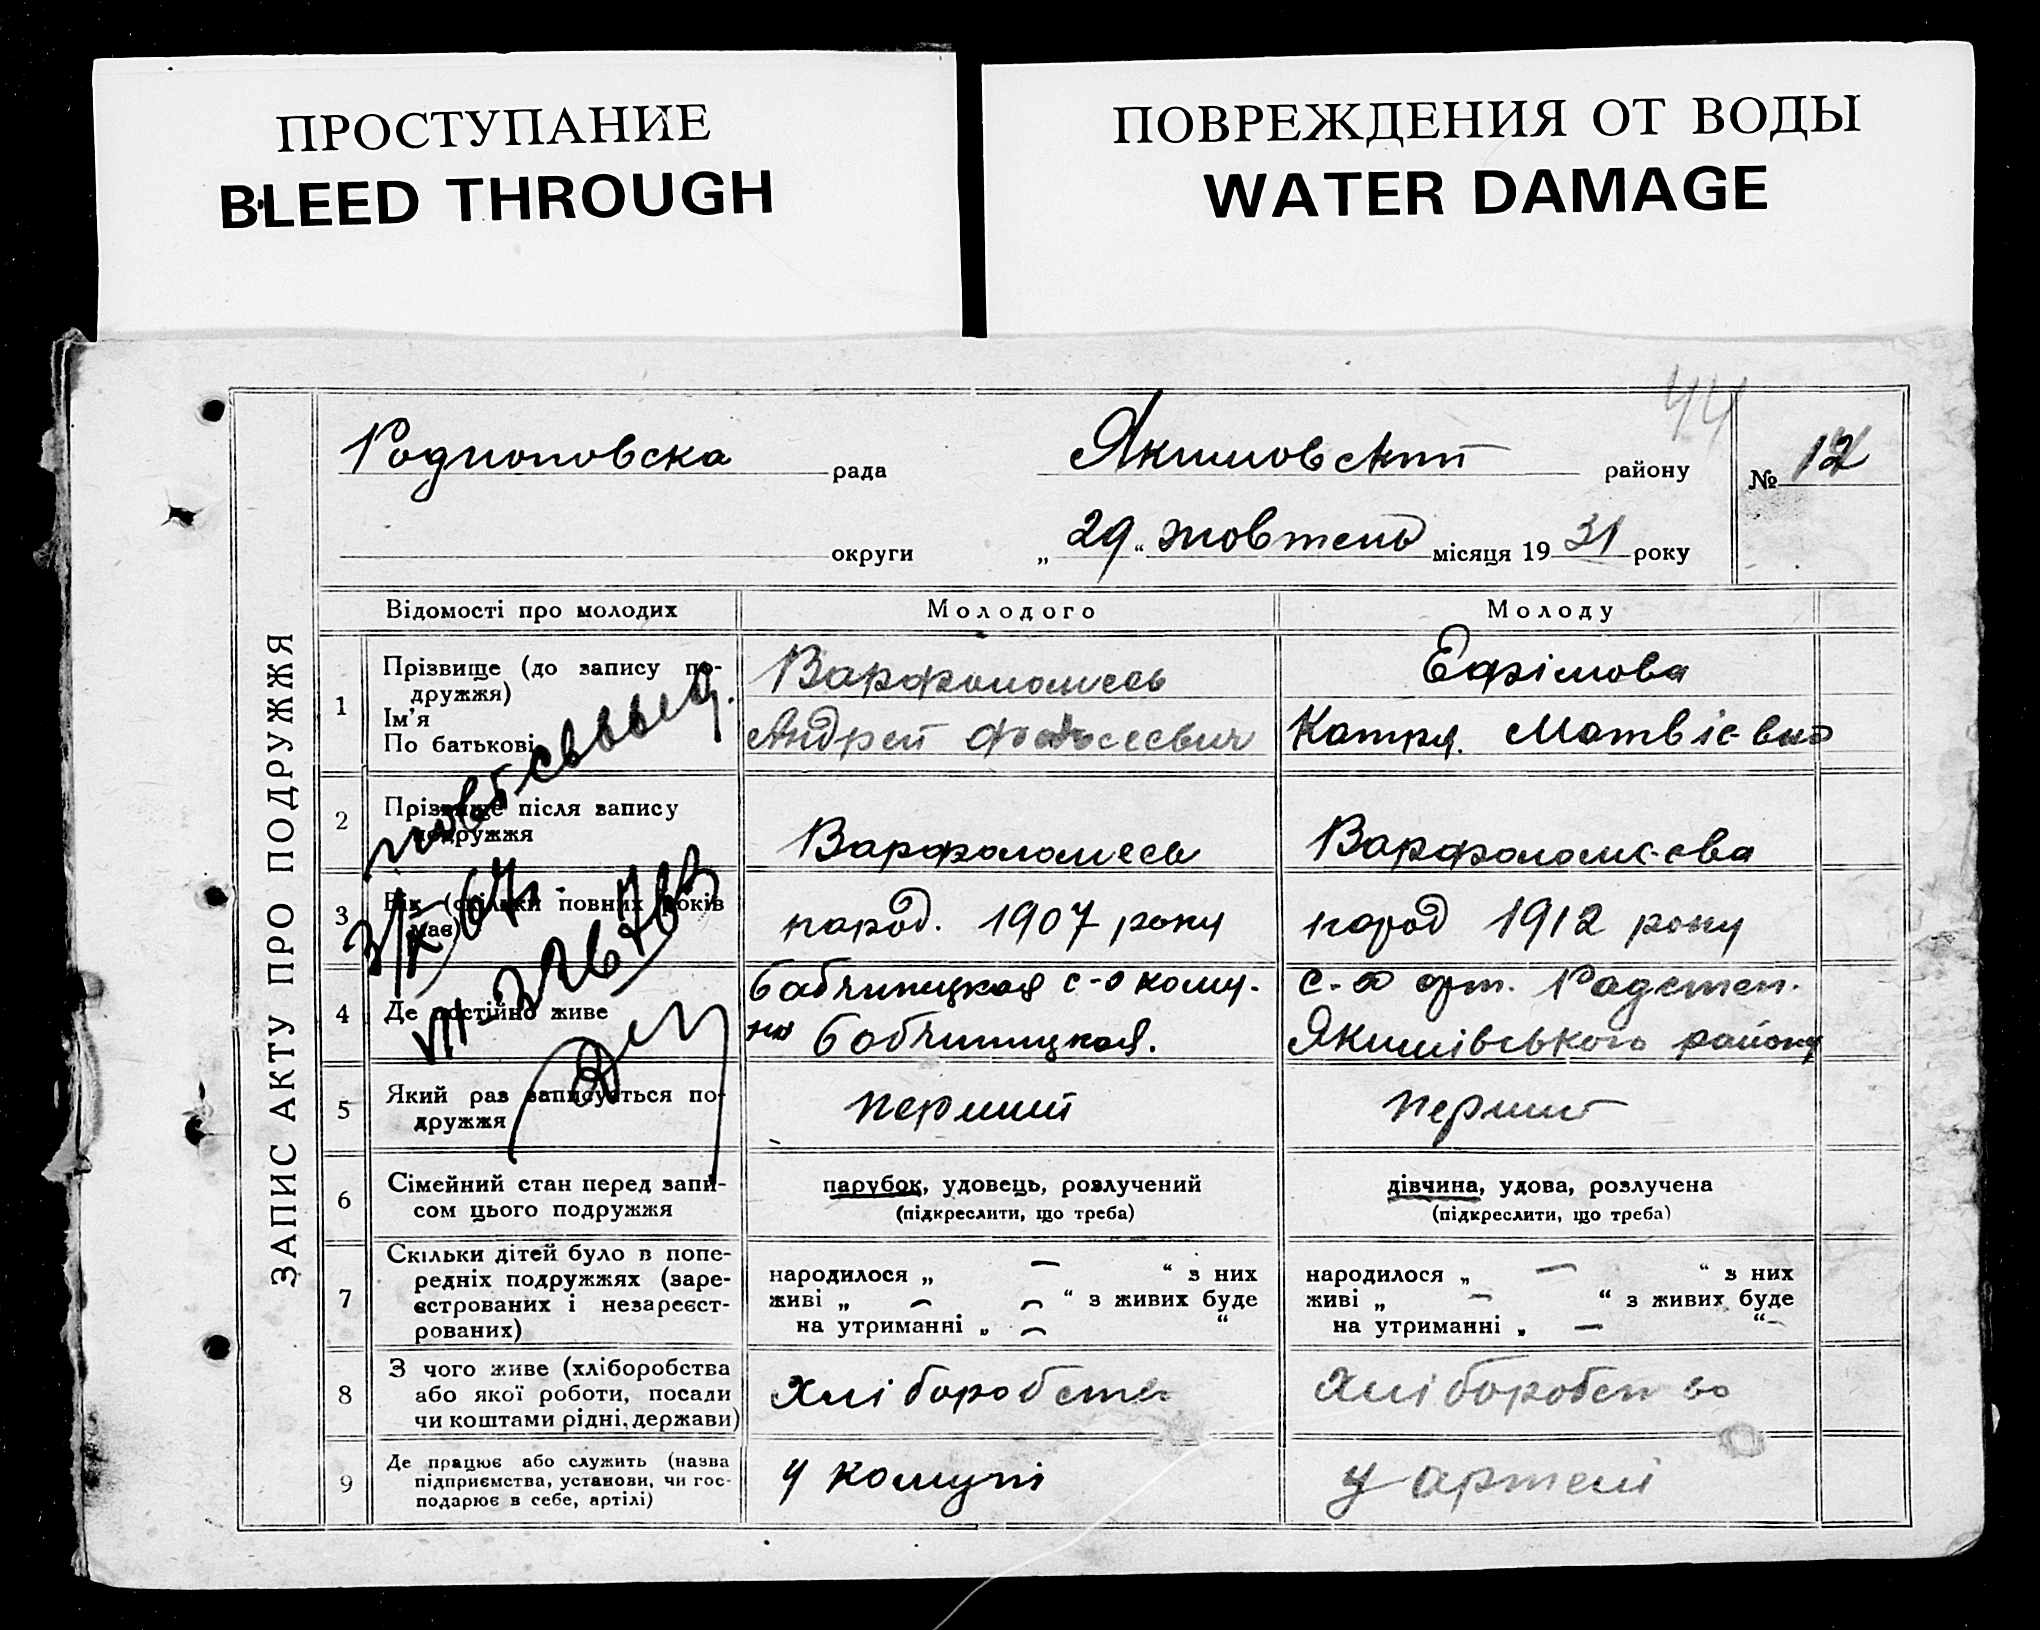 ПРОСТУПАНИЕ
BLEED THROUGH
ПОВРЕЖДЕНИЯ ОТ ВОДЫ
WATER DAMAGE
44
ЗАПИС АКТУ ПРО ПОДРУЖЖЯ
Родионовска рада
Якимовский району
№ 12
округи
„ 29 “ жовтень місяця 1931 року
Відомості про молодих
Молодого
Молоду
1
Прізвище (до запису по-
дружжя)
Ім'я
По батькові
Варфоломеев
Андрей Федосеевич
Ефімова
Катря. Матвіевна
2
Прізвище після запису
подружжя
Варфоломеев
Варфоломеева
3
Вік (скільки повних років
має)
народ. 1907 року
народ 1912 року
4
Де постійно живе
с-о кому-
на
с-о арт. Радстеп.
Якимівського району
5
Який раз записується по-
дружжя
перший
перший
6
Сімейний стан перед запи-
сом цього подружжя
парубок, удовець, розлучений
(підкреслити, що треба)
дівчина, удова, розлучена
(підкреслити, що треба)
7
Скільки дітей було в попе-
редніх подружжях (заре-
єстрованих і незареєст-
рованих)
народилося „ — “ з них
живі „ — — “ з живих буде
на утриманні „ — “
народилося „ — “ з них
живі „ — “ з живих буде
на утриманні „ — “
8
З чого живе (хліборобства
або якої роботи, посади
чи коштами рідні, держави)
хліборобства
хліборобство
9
Де працює або служить (назва
підприємства, установи, чи гос-
подарює в себе, артілі)
у комуні
у артелі